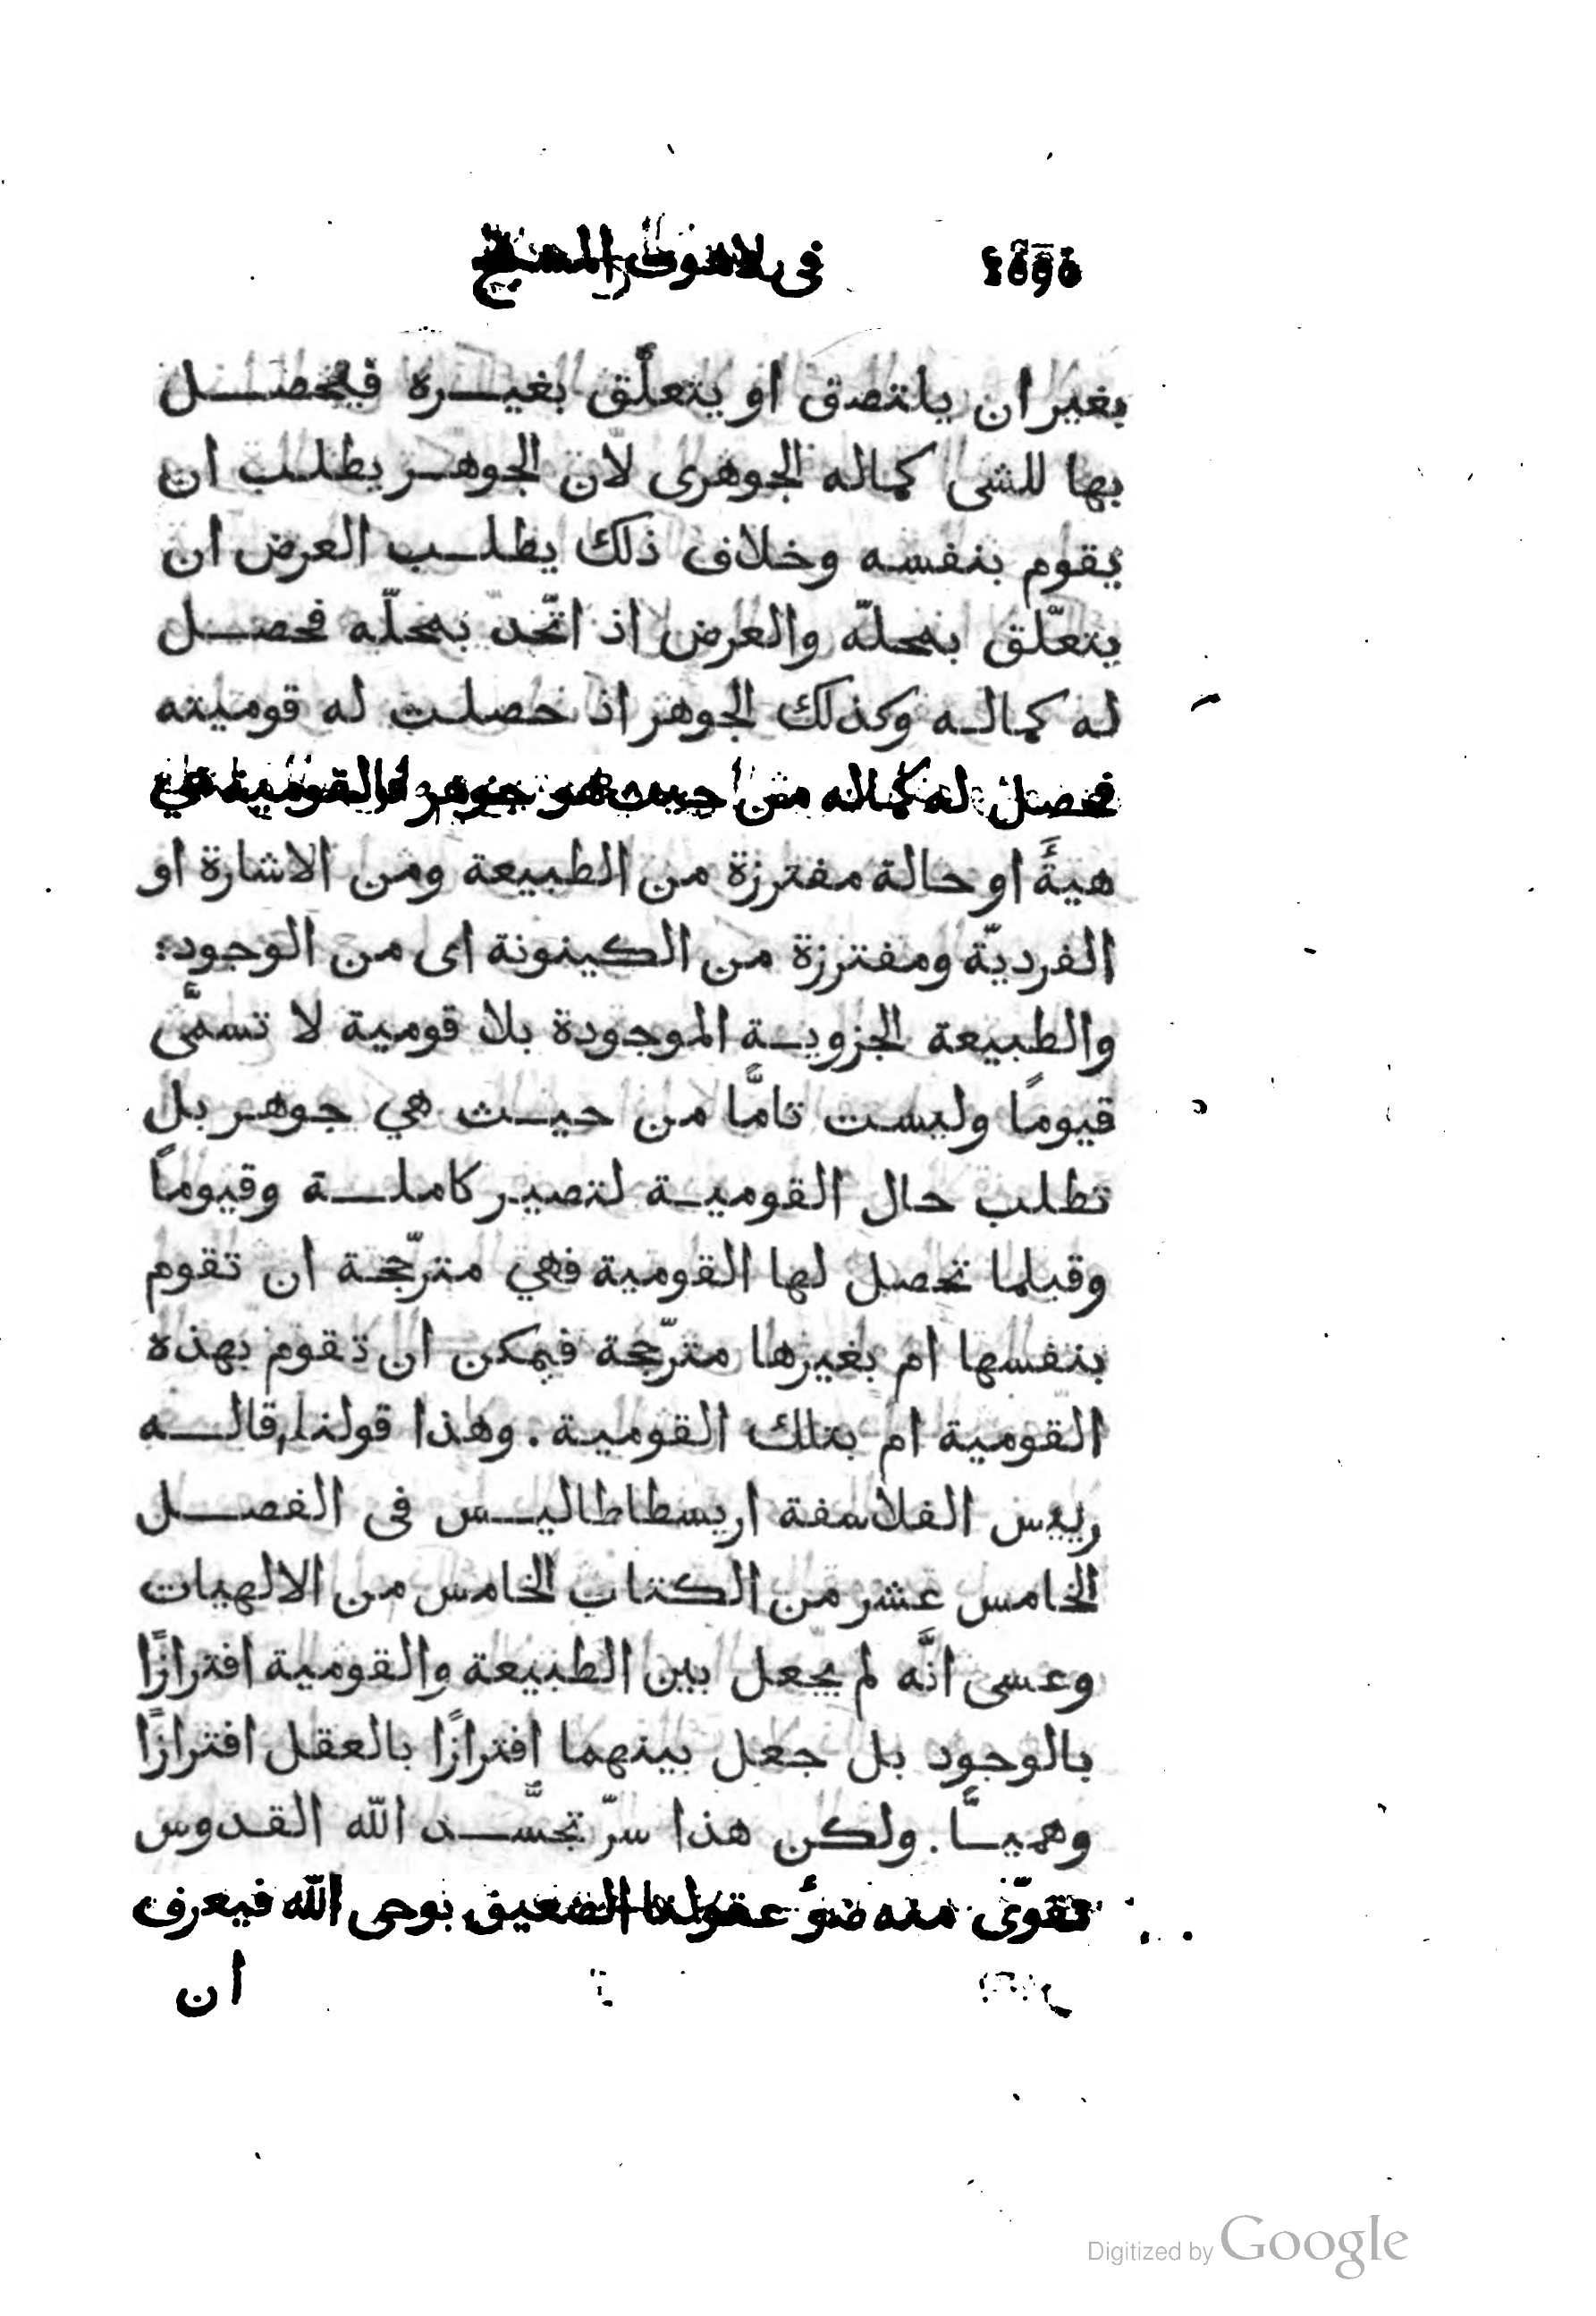 فى لاهوت المسيح
بغير ان يلتصق او يتعلّق بغيره فيحصل
بها للشى كماله الجوهرى لان الجوهر يطلب ان
يقوم بنفسه وخلاف ذلك يطلب العرض ان
يتعلّق بمحلّه والعرض اذ اتّحد بمحلّه فحصل
له كماله وكذلك الجوهر اذا حصلت له قوميته
فحصل له كماله من حيث هو جوهر فالقومية هي
هيةً او حالة مفترزة من الطبيعة ومن الاشارة او
الفرديّة ومفترزة من الكينونة اى من الوجود:
والطبيعة الجزوية الموجودة بلا قومية لا تسمَّى
قيومًا وليست تامًّا من حيث هي جوهر بل
تطلب حال القومية لتصير كاملة وقيومًا
وقبلما تحصل لها القومية فهي مترجّحة ان تقوم
بنفسها ام بغيرها مترجّحة فيمكن ان تقوم بهذه
القومية ام بتلك القومية. وهذا قولنا قاله
رييس الفلاسفة اريسطاطاليس فى الفصل
الخامس عشر من الكتاب الخامس من الالهيات
وعسى انَّه لم يجعل بين الطبيعة والقومية افترازًا
بالوجود بل جعل بينهما افترازًا بالعقل افترازًا
وهميًّا. ولكن هذا سرّ تجسّد الله القدوس
تقوّى منه ضوُ عقولنا الضعيف بوحى الله فيعرف
ان
Digitized by Google